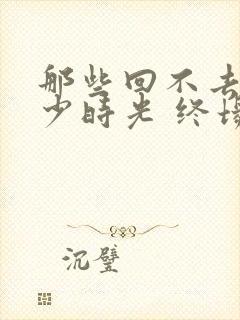 那些回不去
少时光 终场
沉璧